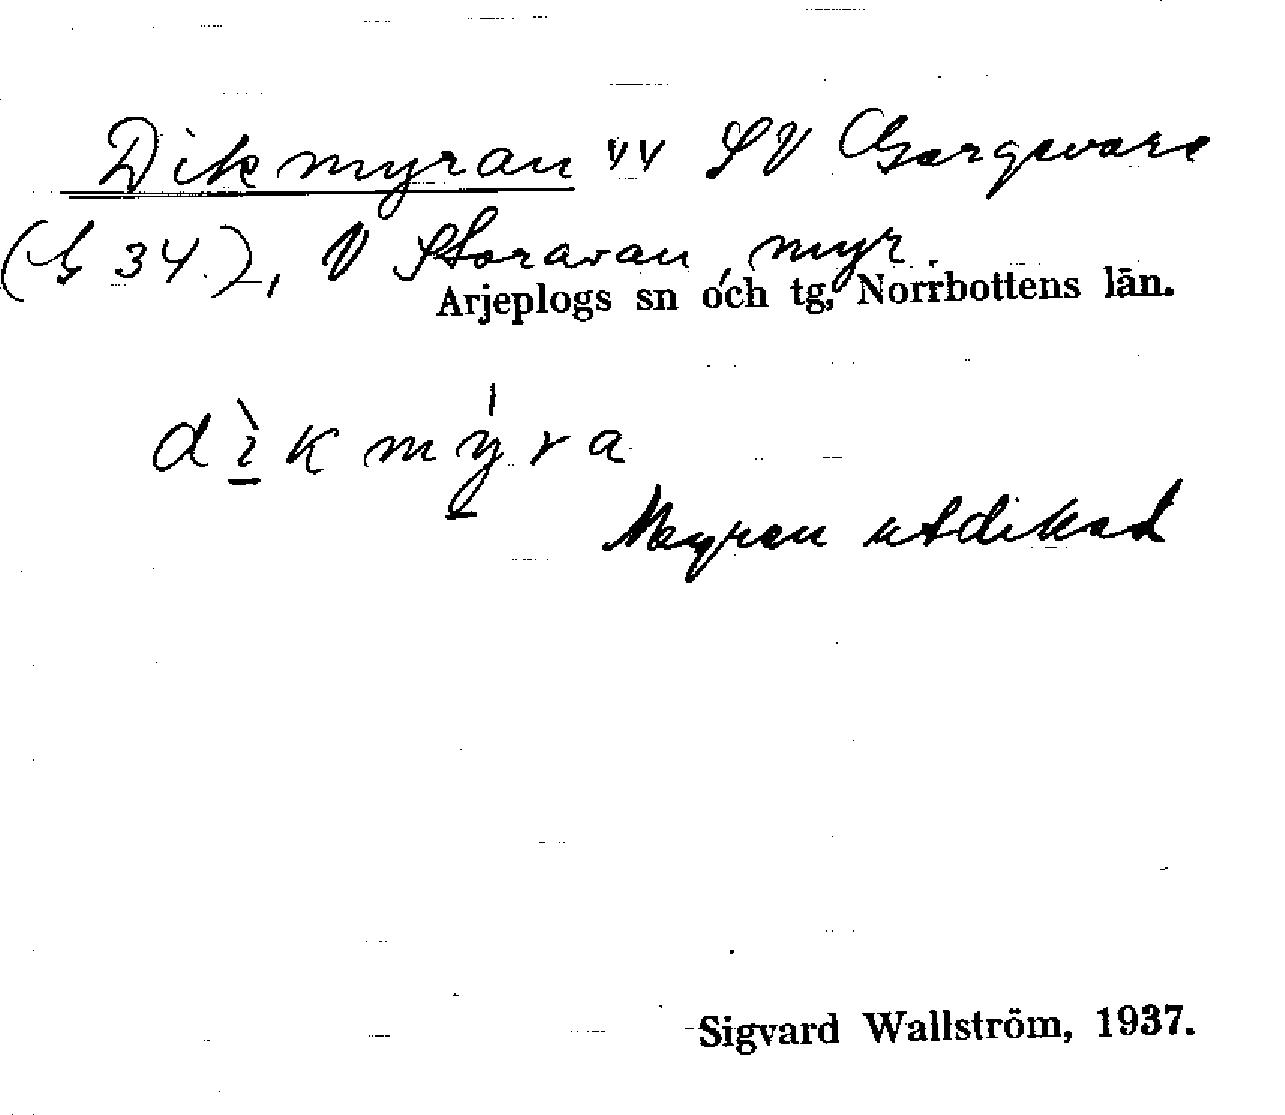 Dikmyran "" SV Gargevare
(G 34.), V Storavan, myr.
Arjeplogs sn och tg, Norrbottens län.
dìkmýra
Myren utdikad
Sigvard Wallström, 1937.